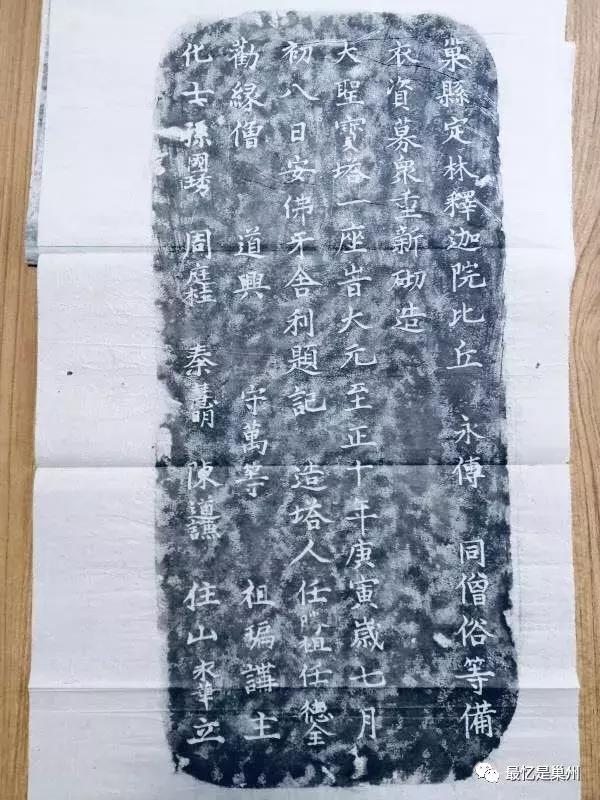 巢縣定林釋迦院比丘 永傳 同僧俗等備
衣資募衆重新砌造
大聖寶塔一座旹大元至正十年庚寅歲七月
初八日安佛牙舍利題記 造塔人任 祖任德全
勸緣僧 道興 守萬等 祖瑞講主
化士孫國琇 周庭桂 秦 陳道 住山永華立
最忆是巢州